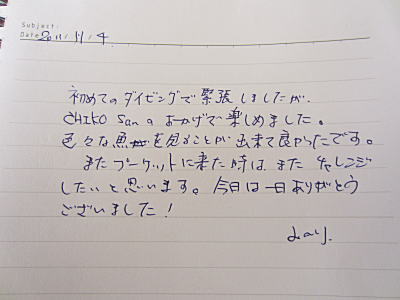 Subject:
Date 2011 / 11 / 4
初めてのダイビングで緊張しましたが、
CHIKO Sanのおかげで楽しめました。
色々な魚を見ることが出来て良かったです。
またプーケットに来た時は、また チャレンジ
したいと思います。今日は一日ありがとう
ございました!